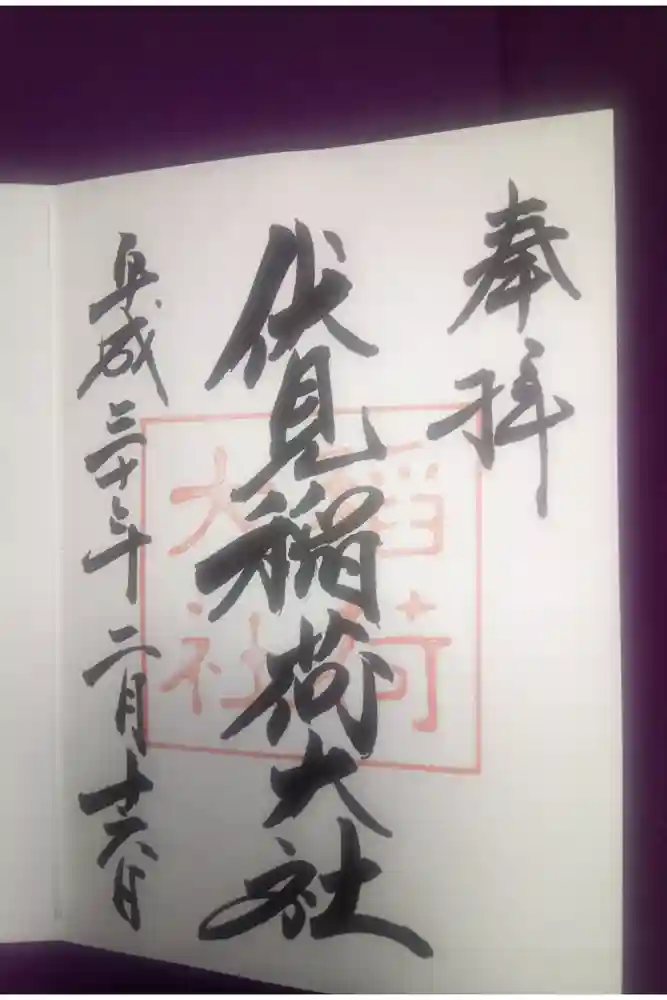 奉拝
伏見稲荷大社
平成三十年二月十六日
稲荷
大社